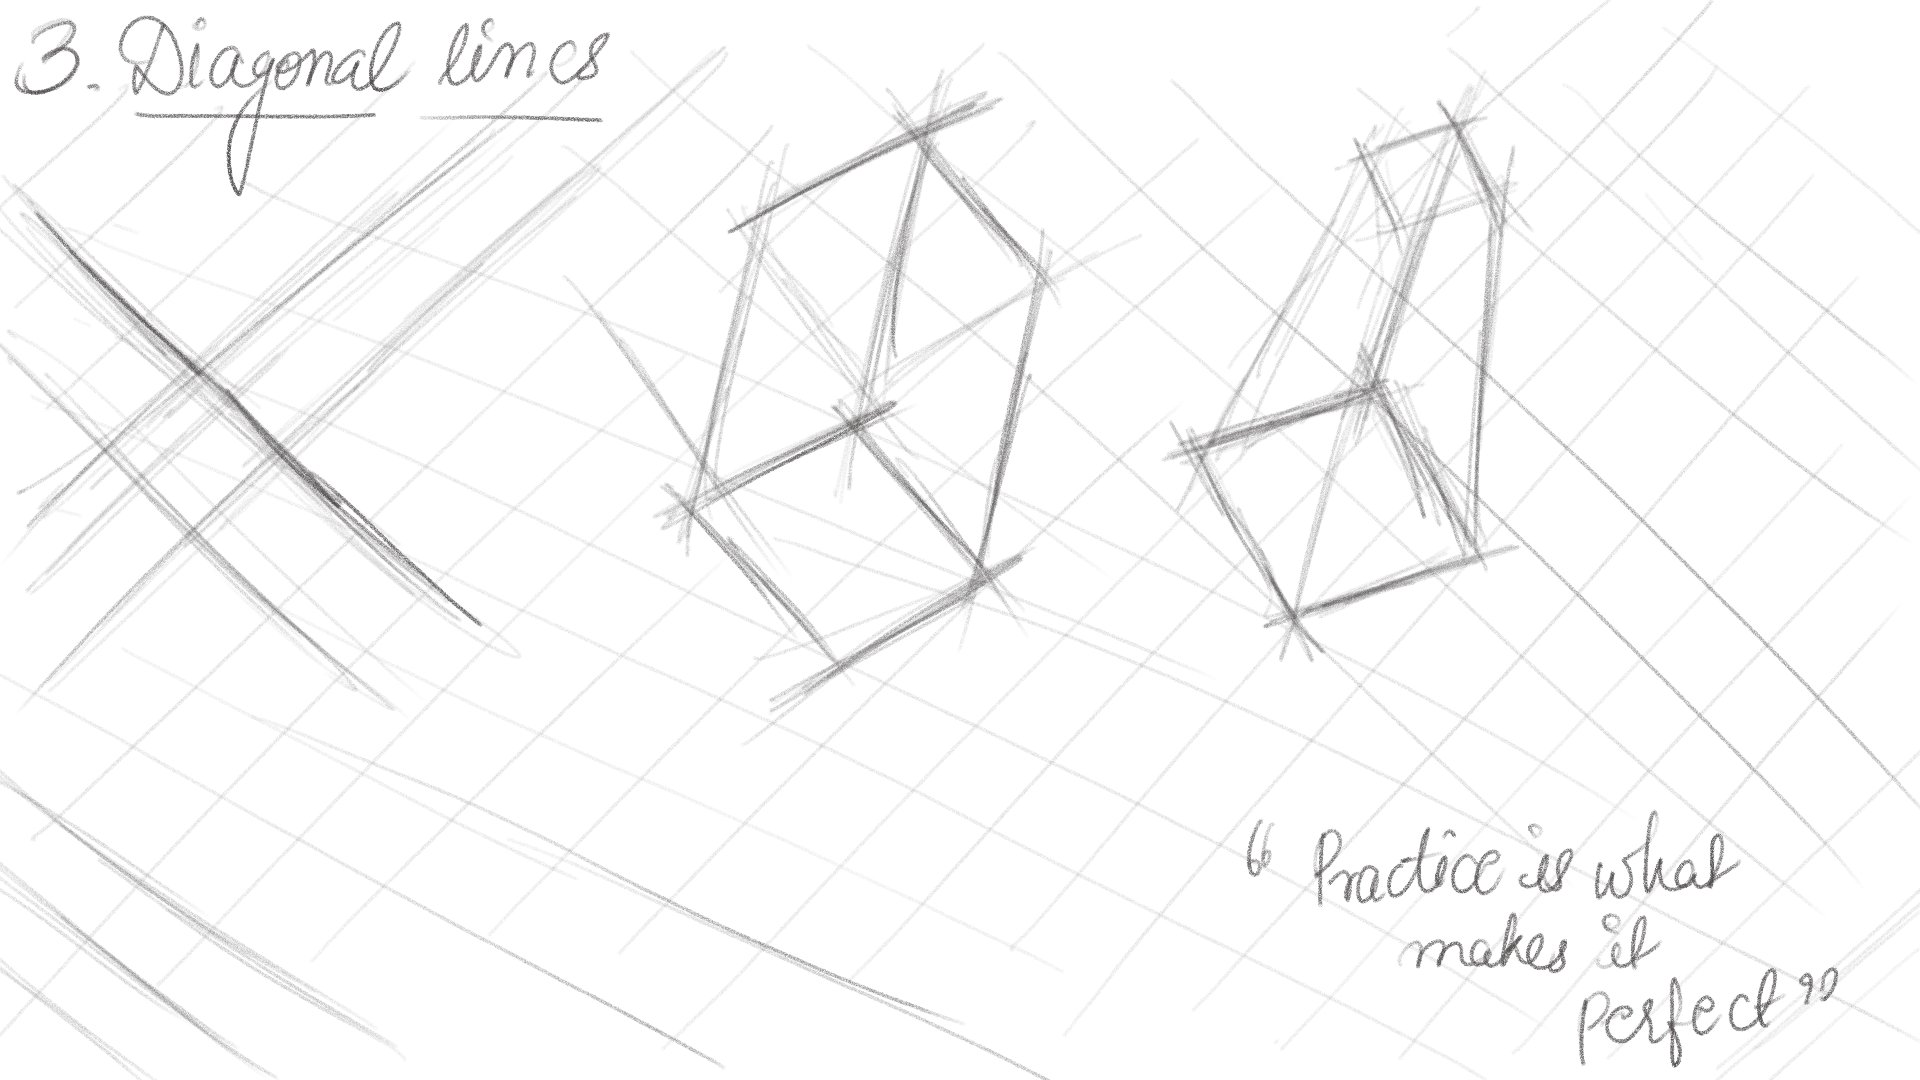 3. Diagonal lines
"Practice is what
makes it
perfect"